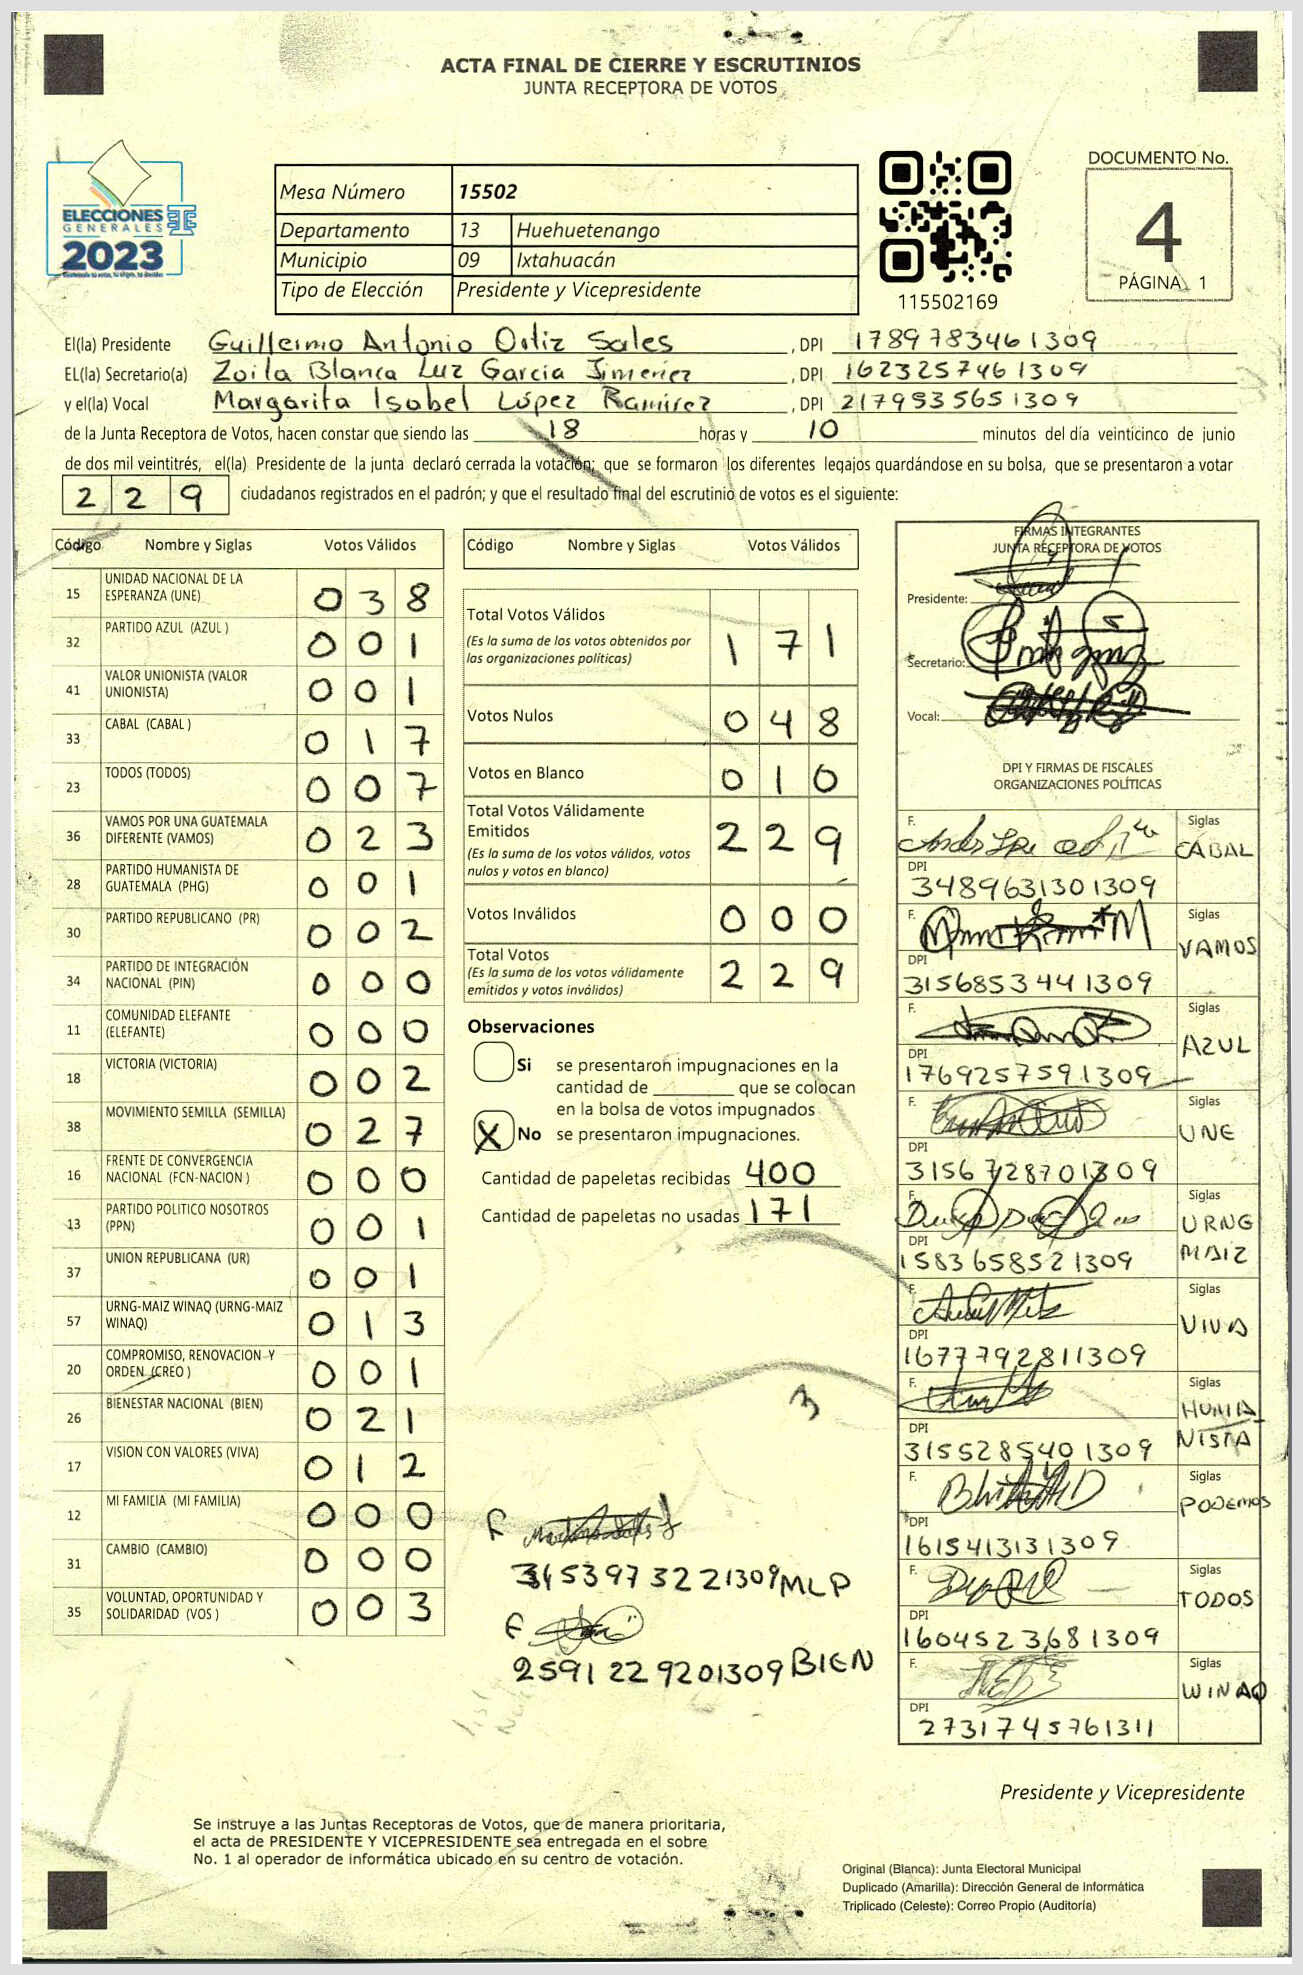 ACTA FINAL DE CIERRE Y ESCRUTINIOS
JUNTA RECEPTORA DE VOTOS
ELECCIONES
GENERALES
2023
Mesa Número 15502
Departamento 13 Huehuetenango
Municipio 09 Ixtahuacán
Tipo de Elección Presidente y Vicepresidente
115502169
DOCUMENTO No.
4
PÁGINA 1
El(la) Presidente Guillermo Antonio Ortiz Sales, DPI 1789783461309
EL(la) Secretario(a) Zoila Blanca Luz Garcia Jimenez, DPI 1623257461309
y el(la) Vocal Margarita Isabel López Ramirez, DPI 2179535651309
de la Junta Receptora de Votos, hacen constar que siendo las 18 horas y 10 minutos del día veinticinco de junio
de dos mil veintitrés, el(la) Presidente de la junta declaró cerrada la votación; que se formaron los diferentes legajos guardándose en su bolsa, que se presentaron a votar
229 ciudadanos registrados en el padrón; y que el resultado final del escrutinio de votos es el siguiente:
Código Nombre y Siglas Votos Válidos
15 UNIDAD NACIONAL DE LA ESPERANZA (UNE) 038
32 PARTIDO AZUL (AZUL ) 001
41 VALOR UNIONISTA (VALOR UNIONISTA) 001
33 CABAL (CABAL ) 017
23 TODOS (TODOS) 007
36 VAMOS POR UNA GUATEMALA DIFERENTE (VAMOS) 023
28 PARTIDO HUMANISTA DE GUATEMALA (PHG) 001
30 PARTIDO REPUBLICANO (PR) 002
34 PARTIDO DE INTEGRACIÓN NACIONAL (PIN) 000
11 COMUNIDAD ELEFANTE (ELEFANTE) 000
18 VICTORIA (VICTORIA) 002
38 MOVIMIENTO SEMILLA (SEMILLA) 027
16 FRENTE DE CONVERGENCIA NACIONAL (FCN-NACION ) 000
13 PARTIDO POLITICO NOSOTROS (PPN) 001
37 UNION REPUBLICANA (UR) 001
57 URNG-MAIZ WINAQ (URNG-MAIZ WINAQ) 013
20 COMPROMISO, RENOVACION Y ORDEN (CREO ) 001
26 BIENESTAR NACIONAL (BIEN) 021
17 VISION CON VALORES (VIVA) 012
12 MI FAMILIA (MI FAMILIA) 000
31 CAMBIO (CAMBIO) 000
35 VOLUNTAD, OPORTUNIDAD Y SOLIDARIDAD (VOS ) 003
Código Nombre y Siglas Votos Válidos
Total Votos Válidos 171
(Es la suma de los votos obtenidos por
las organizaciones políticas)
Votos Nulos 048
Votos en Blanco 010
Total Votos Válidamente
Emitidos 229
(Es la suma de los votos válidos, votos
nulos y votos en blanco)
Votos Inválidos 000
Total Votos 229
(Es la suma de los votos válidamente
emitidos y votos inválidos)
Observaciones
Si se presentaron impugnaciones en la
cantidad de ________ que se colocan
en la bolsa de votos impugnados
X No se presentaron impugnaciones.
Cantidad de papeletas recibidas 400
Cantidad de papeletas no usadas 171
3
F
3453973221309 MLP
F
2591229201309 BIEN
FIRMAS INTEGRANTES
JUNTA RECEPTORA DE VOTOS
Presidente:
Secretario:
Vocal:
DPI Y FIRMAS DE FISCALES
ORGANIZACIONES POLÍTICAS
F. Siglas CABAL
DPI 3489631301309
F. Siglas VAMOS
DPI 3156853441309
F. Siglas AZUL
DPI 1769257591309
F. Siglas UNE
DPI 3156728701309
F. Siglas URNG MAIZ
DPI 1583658521309
F. Siglas VIVA
DPI 1677792811309
F. Siglas HUMANISTA
DPI 3155285401309
F. Siglas PODEMOS
DPI 1615413131309
F. Siglas TODOS
DPI 1604523681309
F. Siglas WINAQ
DPI 2731745761311
Presidente y Vicepresidente
Se instruye a las Juntas Receptoras de Votos, que de manera prioritaria,
el acta de PRESIDENTE Y VICEPRESIDENTE sea entregada en el sobre
No. 1 al operador de informática ubicado en su centro de votación.
Original (Blanca): Junta Electoral Municipal
Duplicado (Amarilla): Dirección General de Informática
Triplicado (Celeste): Correo Propio (Auditoría)